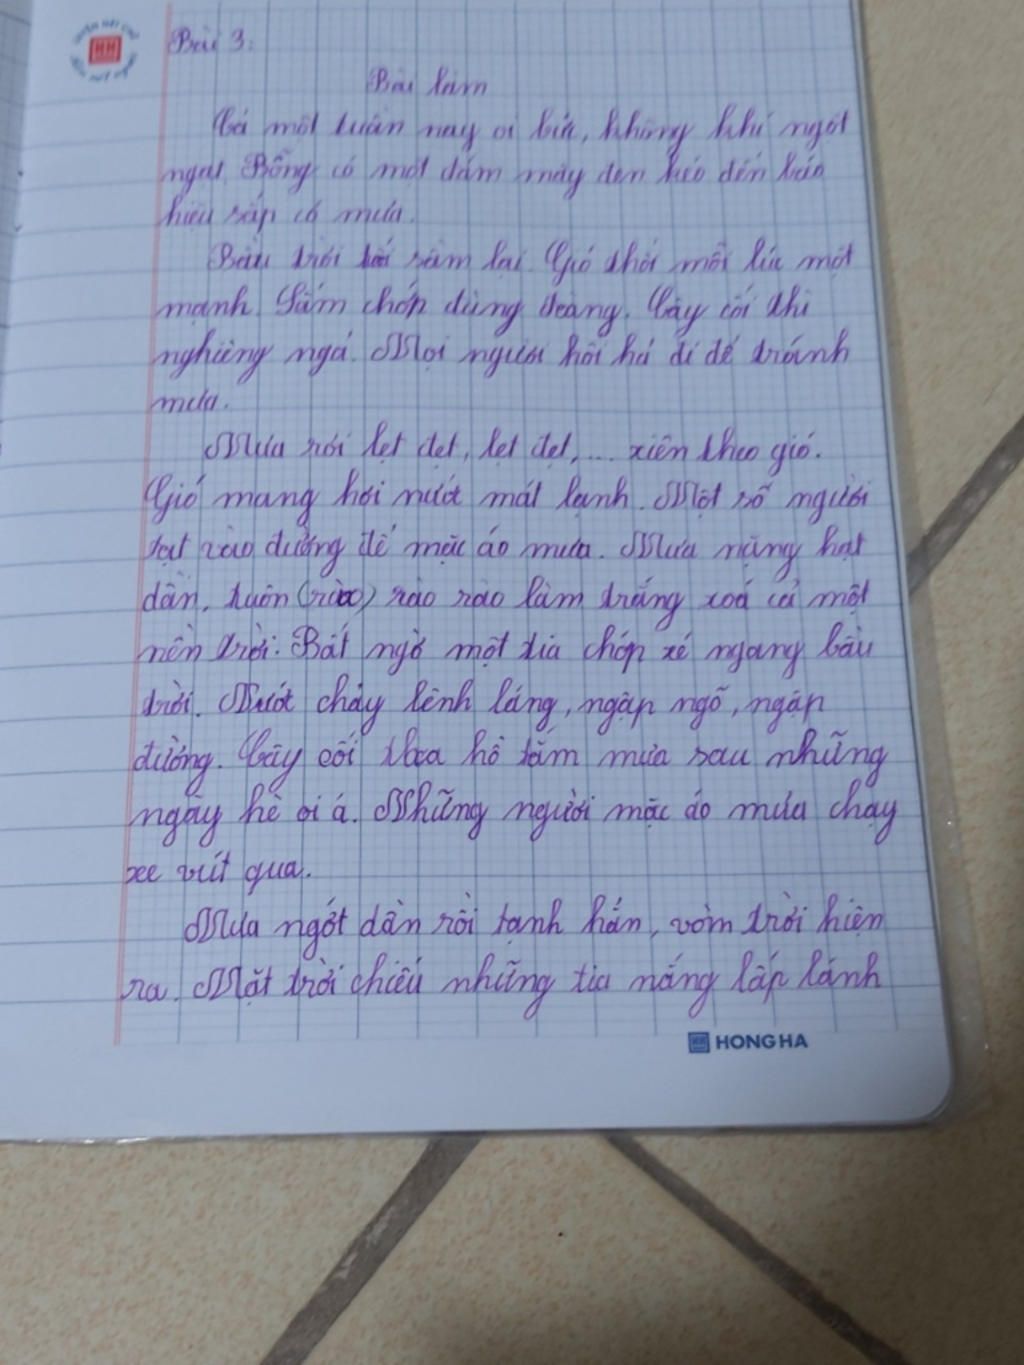 Bài 3:
Bài làm
Cả một tuần nay oi bức, không khí ngột
ngạt. Bỗng có một đám mây đen kéo đến báo
hiệu sắp có mưa.
Bầu trời tối sầm lại. Gió thổi mỗi lúc một
mạnh. Sấm chớp đùng đoàng. Cây cối thì
nghiêng ngả. Mọi người hối hả đi để tránh
mưa.
Mưa rơi lẹt đẹt, lẹt đẹt,... xiên theo gió.
Gió mang hơi nước mát lạnh. Một số người
tạt vào đường để mặc áo mưa. Mưa nặng hạt
dần, tuôn (rào) rào rào làm trắng xoá cả một
nền trời. Bất ngờ một tia chớp xé ngang bầu
trời. Nước chảy lênh láng, ngập ngõ, ngập
đường. Cây cối thoa hồ tắm mưa sau những
ngày hè oi ả. Những người mặc áo mưa chạy
xe vút qua.
Mưa ngớt dần rồi tạnh hẳn, vòm trời hiện
ra. Mặt trời chiếu những tia nắng lấp lánh
HONG HA